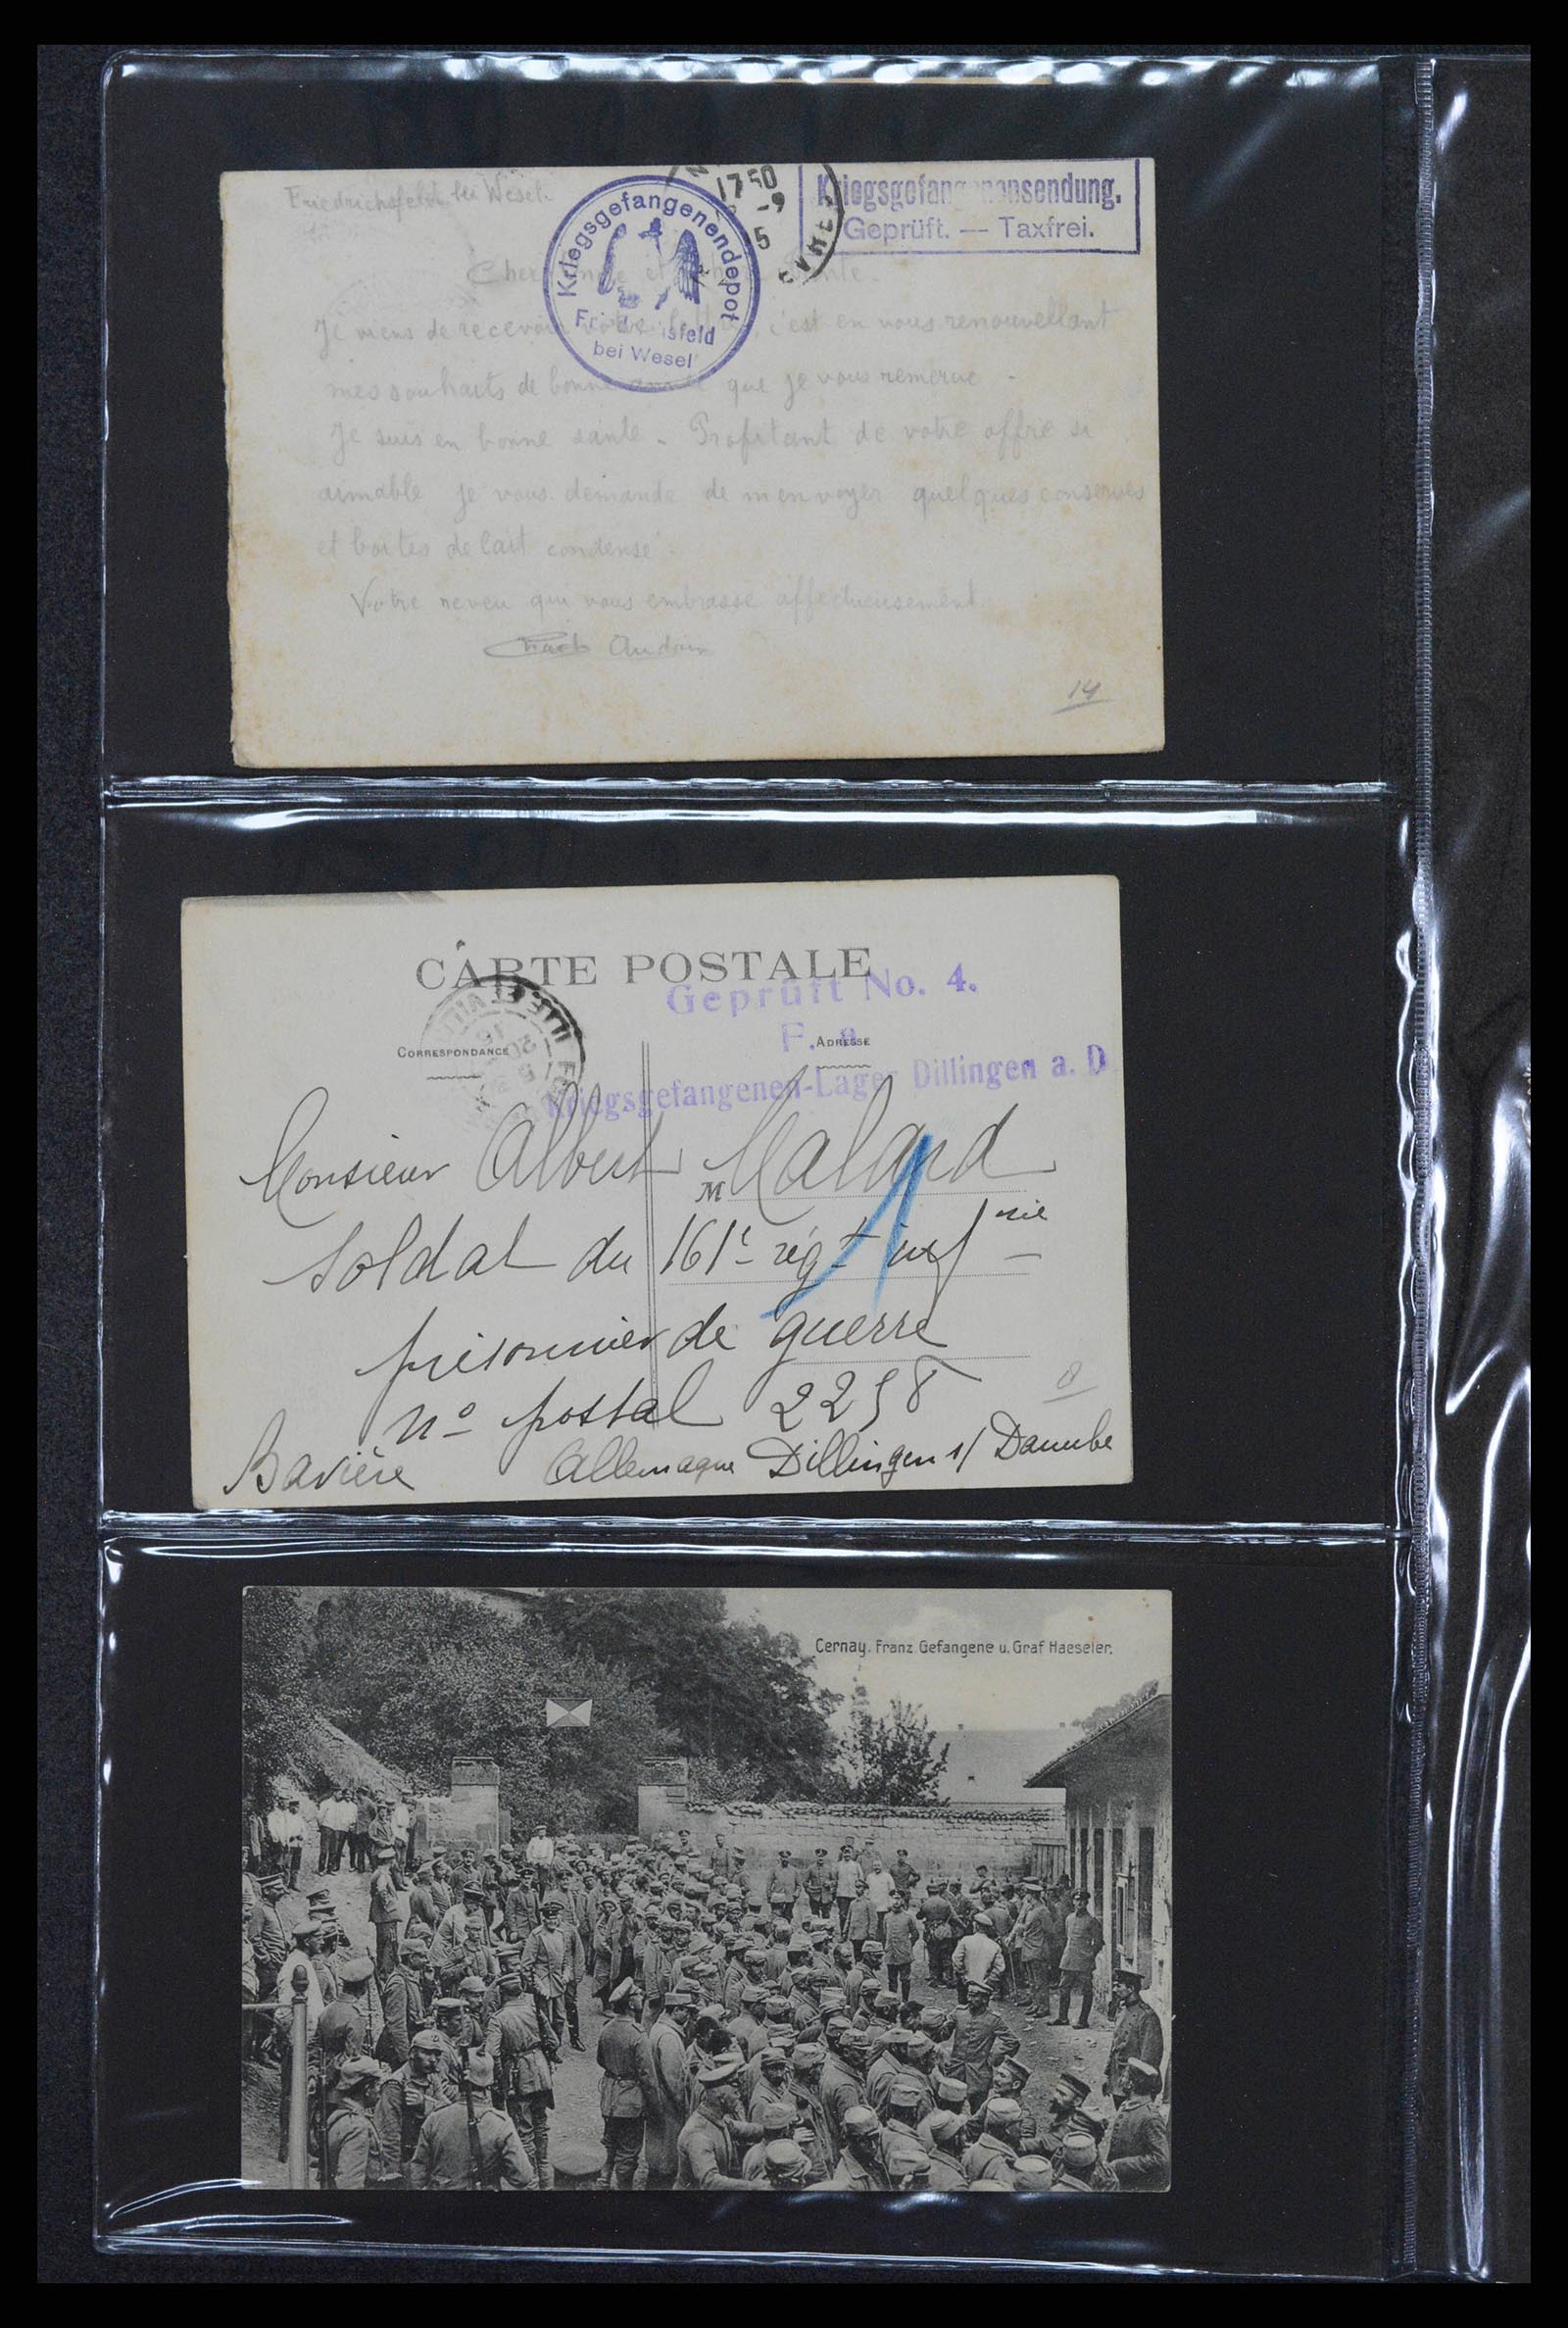 Friedrichsfeld bei Wesel.
17 50
-9
5
Kriegsgefangenensendung.
Geprüft. — Taxfrei.
Kriegsgefangenendepot
Friedrichsfeld
bei Wesel
Cher Oncle et chère Tante.
Je viens de recevoir votre lettre, c'est en vous renouvellant
mes souhaits de bonne année que je vous remercie -
Je suis en bonne santé - Profitant de votre offre si
aimable je vous demande de m'envoyer quelques conserves
et boites de lait condensé.
Votre neveu qui vous embrasse affectueusement
14
CARTE POSTALE
Geprüft No. 4.
F. a.
CORRESPONDANCE
ADRESSE
Kriegsgefangenen-Lager Dillingen a. D
Monsieur Albert Malard
M
Soldat du 161e régt infrie
prisonnier de guerre
No postal 2258
Bavière Allemagne Dillingen s/ Danube
8
Cernay. Franz. Gefangene u. Graf Haeseler.